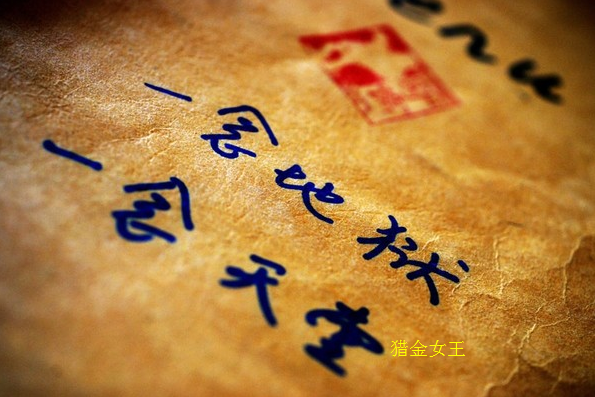 enu
一念地獄
一念天堂
猎金女王